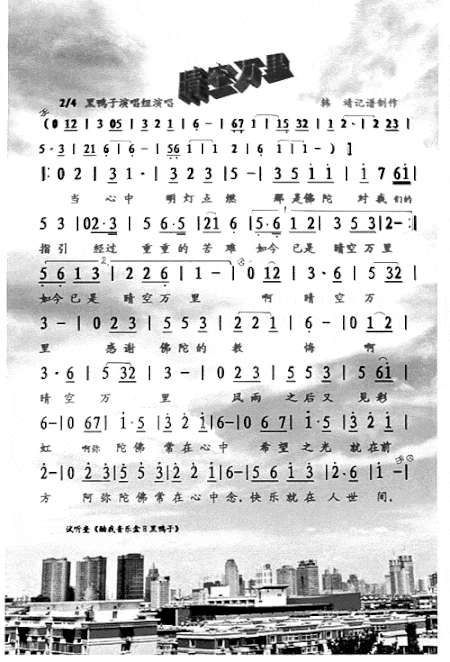 晴空万里
2/4 黑鸭子演唱组演唱 韩 靖记谱制作
(0 12 | 3 05 | 3 21 | 6 - | 67 1 | 15 32 | 1 - | 2 23 |
5·3 | 21 6 | 6 - | 56 1 | 1 2 | 6 1 | 1 - ) |
‖: 0 2 | 3 1 | 2 3 | 5 - | 3 5 1 1 | 1 7 6 1 |
当 心中 明灯点燃 那是佛陀 对我们的
5 3 | 0 2·3 | 5 6·5 | 2 1 6 | 5·6 1 2 | 3 5 3 | 2 - :‖
指引 经过 重重的 苦难 如今已是晴空万里
5 6 1 3 | 2 2 6 | 1 - | 0 1 2 | 3·6 | 5 3 2 |
如今已是 晴空万里 啊 晴空万
3 - | 0 2 3 | 5 5 3 | 2 2 1 | 6 - | 0 1 2 |
里 感谢 佛陀的 教 诲 啊
3·6 | 5 3 2 | 3 - | 0 2 3 | 5 5 3 | 5 6 1 |
晴空 万 里 风雨 之后又 见彩
6 - | 0 6 7 | 1·5 | 3 2 1 | 6 - | 0 6 7 | 1·5 | 3 2 1 |
虹 啊弥 陀佛 常在心中 希望 之光 就在前
2 - | 0 2 3 | 5 5 3 | 2 2 1 | 6 - | 5 6 1 | 3 5 1 | 2·6 | 1 - |
方 阿弥陀佛常在心中念，快乐就在人世间。
试听登《酷我音乐盒日黑鸭子》